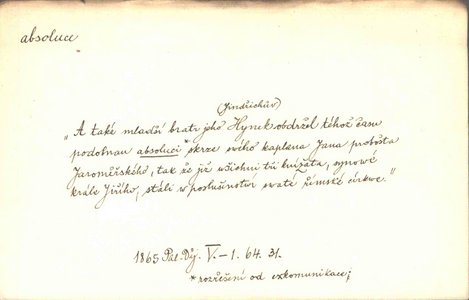 absoluce
(Jindřichův)
"A také mladší bratr jeho Hynek obdržel téhož času
podobnau absoluci * skrze svého kaplana Jana probošta
Jaroměřského, tak že již všichni tři knížata, synowé
krále Jiřího, stáli w poslušenstwí swaté římské církwe."
1865 Pal. Děj. V.-1. 64. 31.
* rozřešení od exkomunikace;